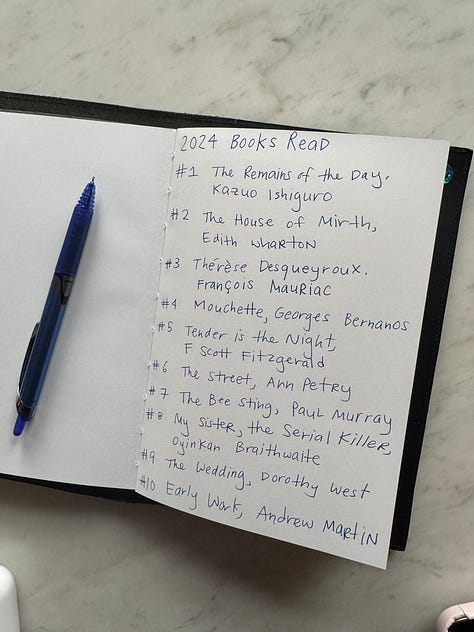 2024 Books Read
#1 The Remains of the Day,
Kazuo Ishiguro
#2 The House of Mirth,
Edith Wharton
#3 Thérèse Desqueyroux.
François Mauriac
#4 Mouchette, Georges Bernanos
#5 Tender is the Night,
F Scott Fitzgerald
#6 The Street, Ann Petry
#7 The Bee Sting, Paul Murray
#8 My Sister, the Serial Killer,
Oyinkan Braithwaite
#9 The Wedding, Dorothy West
#10 Early Work, Andrew Martin